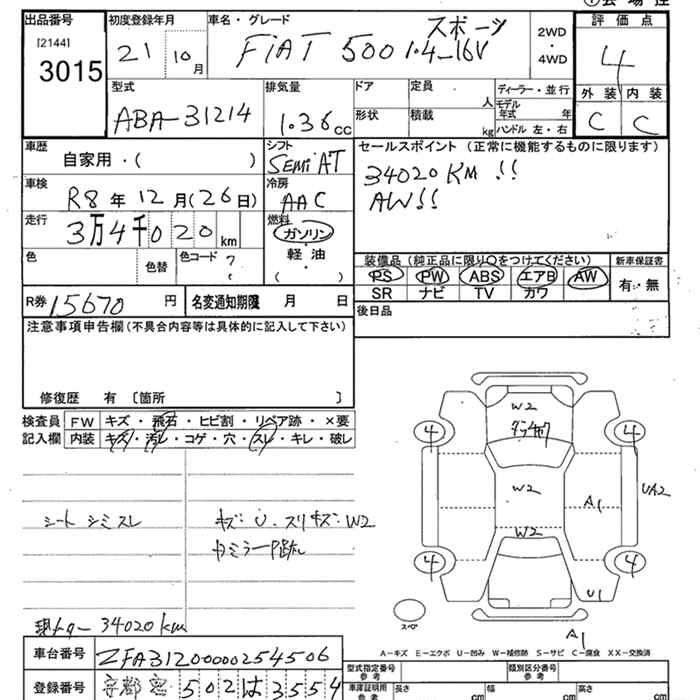 出品番号 初度登録年月 車名・グレード スポーツ 2WD ・ 4WD 評価点
[2144] 3015 21 10月 FiAT 500 1.4-16V 4
型式 排気量 ドア 定員 人 ディーラー・並行 外装 内装
ABA-31214 1.36cc 形状 積載 kg モデル年式 年 ハンドル 左・右 C C
車歴 自家用・( ) シフト SEMi AT セールスポイント (正常に機能するものに限ります)
車検 R8年12月(26日) 冷房 AAC 34020KM !!
走行 3万4千020km 燃料 ガソリン・軽油・( ) AW!!
色 色替 色コード ? 装備品(純正品に限り○をつけてください) 新車保証書
PS PW ABS エアB AW 有・無
SR ナビ TV カワ
R券 15670円 名変通知期限 月 日 後日品
注意事項申告欄(不具合内容等は具体的に記入して下さい)
修復歴 有 〔箇所 〕
検査員記入欄 FW キズ・飛石・ヒビ割・リペア跡・×要
内装 キズ・汚レ・コゲ・穴・スレ・キレ・破レ
シート シミスレ キズ:U.スリキズ:W2
W2
4 4
W2 A1 UA2
W2
4 4
U1
スペア A1
現メーター 34020km
A-キズ E-エクボ U-凹み W-補修跡 S-サビ C-腐食 XX-交換済
車台番号 ZFA31200000254506
型式指定番号 参考 類別区分番号 参考
登録番号 宇都宮 502 は 3554
車庫証明用 参考 長さ cm 幅 cm 高さ cm